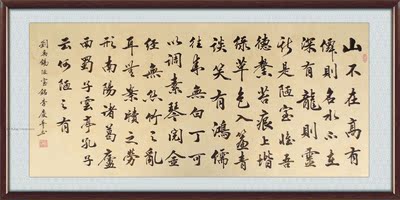 山不在高有
僊則名水不在
深有龍則靈
斯是陋室惟吾
德馨苔痕上堦
綠草色入簾青
談笑有鴻儒
往來無白丁可
以調素琴閱金
經無絲竹之亂
耳無案牘之勞
形南陽諸葛廬
西蜀子雲亭孔子
云何陋之有
劉禹錫陋室銘